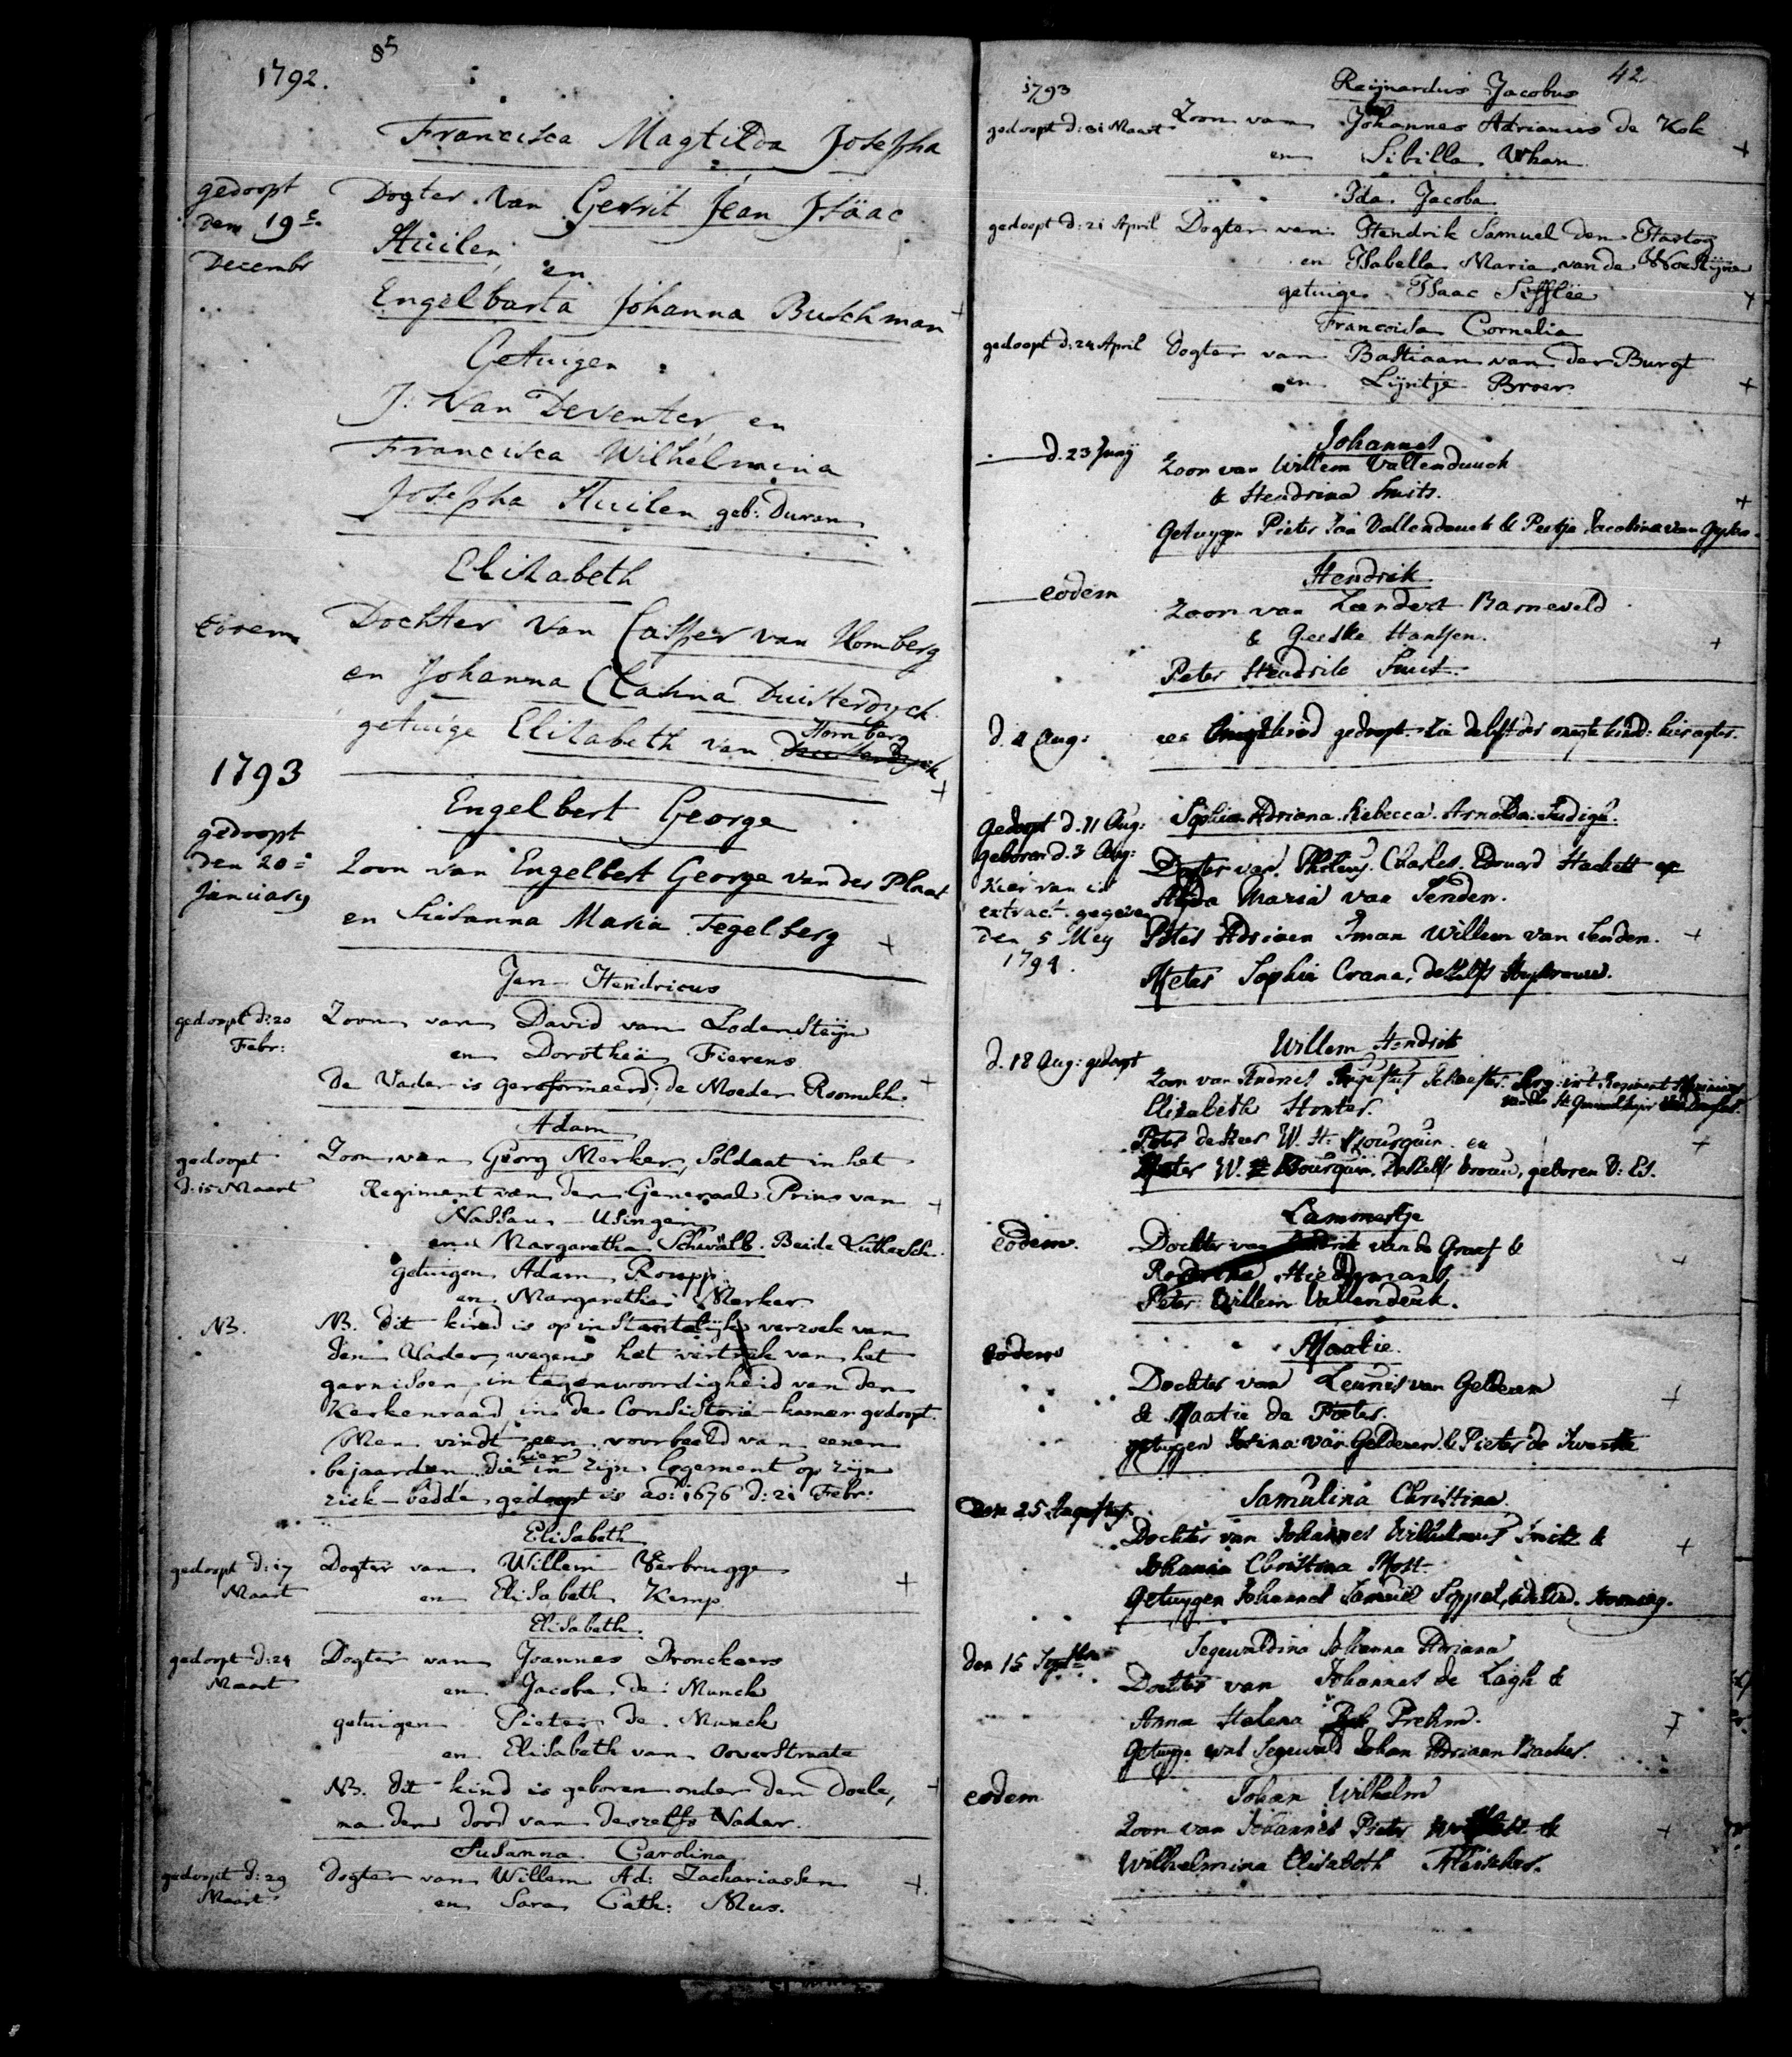 85
1792.
Francisca Magtilda Josepha
gedoopt
den 19e.
Decembr
Dogter van Gerrit Jean Isäac
Huilen, en
Engelbarta Johanna Buschman
Getuigen
J: van Deventer, en
Francisca Wilhelmina
Josepha Huilen geb: Duren
Elisabeth
Eodem
Dochter van Casper van Homberg
en Johanna Clasina Duisterdyck
getuige Elisabeth van Homberg
1793
Engelbert George
gedoopt
den 20e
January
Zoon van Engelbert George van der Plaat
en Susanna Maria Tegelberg
Jan Hendricus
gedoopt d: 20
Febr:
Zoon van David van Lodensteijn
en Dorotheä Fierens
De Vader is gereformeerd: de Moeder Roomskh:
Adam
gedoopt
d: 15 Maart
Zoon van Georg Merker, Soldaat in het
Regiment van den Generaal Prins van
Nassau-Usingen
en Margaretha Schwalb. Beide Luthersch.
getuigen Adam Roupp
en Margaretha Merker
NB.
NB. dit kind is op instantelijk verzoek van
den Vader, wegens het vertrek van het
garnisoen, in tegenwoordigheid van den
Kerkenraad in de Consistorie-kamer gedoopt.
Men vindt een voorbeeld van eenen
bejaarden, die hier in zijn logement op zijn
ziek-bedde gedoopt is ao: 1676 d: 21 Febr:
Elisabeth
gedoopt d: 17
Maart
Dogter van Willem Verbrugge
en Elisabeth Kemp
Elisabeth
gedoopt d: 24
Maart
Dogter van Joannes Dronckaers
en Jacoba de Munck
getuigen Pieter de Munck
en Elisabeth van Overstraate
NB. dit kind is geboren onder den Doele,
na den dood van deszelfs Vader.
Susanna Carolina
gedoopt d: 29
Maart
Dogter van Willem Ad: Zachariassen
en Sara Cath: Mus.
42
1793
Reijnardus Jacobus
gedoopt d: 31 Maart
Zoon van Johannes Adrianus de Kok
en Sibilla Whan
Ida Jacoba
gedoopt d: 21 April
Dogter van Hendrik Samuel den Hartog
en Isabella Maria van de Woestijne
getuige Isaac Sifflée
Francoisa Cornelia
gedoopt d: 24 April
Dogter van Bastiaan van der Burgt
en Lijntje Broer
Johannes
d. 23 Junij
Zoon van Willem Vallenduuck
& Hendrina Smits.
Getuygen Pieter Jan Vallenduuck & Pertje Jacobina van
Hendrik
eodem
Zoon van Leendert Barneveld
& Geeske Hansen.
Peter Hendrik Smit.
d. 4 Aug:
een kind gedoopt. Zie de lyst der onegte kind: hier agter.
Gedoopt d. 11 Aug:
geboren d. 3 Aug:
hier van is
extract gegeven
den 5 Mey
1794.
Sophia Adriana Rebecca Arnolda Judigh.
Dogter van Charles Edouard Hackett en
Alida Maria van Senden.
Peter Adriaen Iman Willem van Senden.
Meter Sophia Crane, deszelfs Huysvrouw.
Willem Hendrik
d. 18 Aug: gedoopt
Zoon van Andries Augustus
Elizabeth Honter.
Peter de Heer W. H. Bourquin en
Meter W. Bourquin deszelfs vrouw, geboren
Lammertje
eodem.
Dochter van van de Graaf &
Peter Willem Vallenduuk.
Maatie.
eodem
Dochter van Leunis van Gelderen
& Maatie de Poeter.
getuygen van Gelderen & Pieter de
Samulina Christina
den 25 Augustus.
Dochter van Johannes Wilhelmus Smitz &
Johanna Christina Mott.
Getuygen Johannes Samuel
Segewaldina Johanna Adriana
den 15 Septbr
Dochter van Johannes de Lagh &
Anna Helena Prehm.
Getuyge was Segewald Johan Adriaan Backer.
eodem
Johan Wilhelm
Zoon van Johannes Pieter &
Wilhelmina Elisabeth Fleischer.